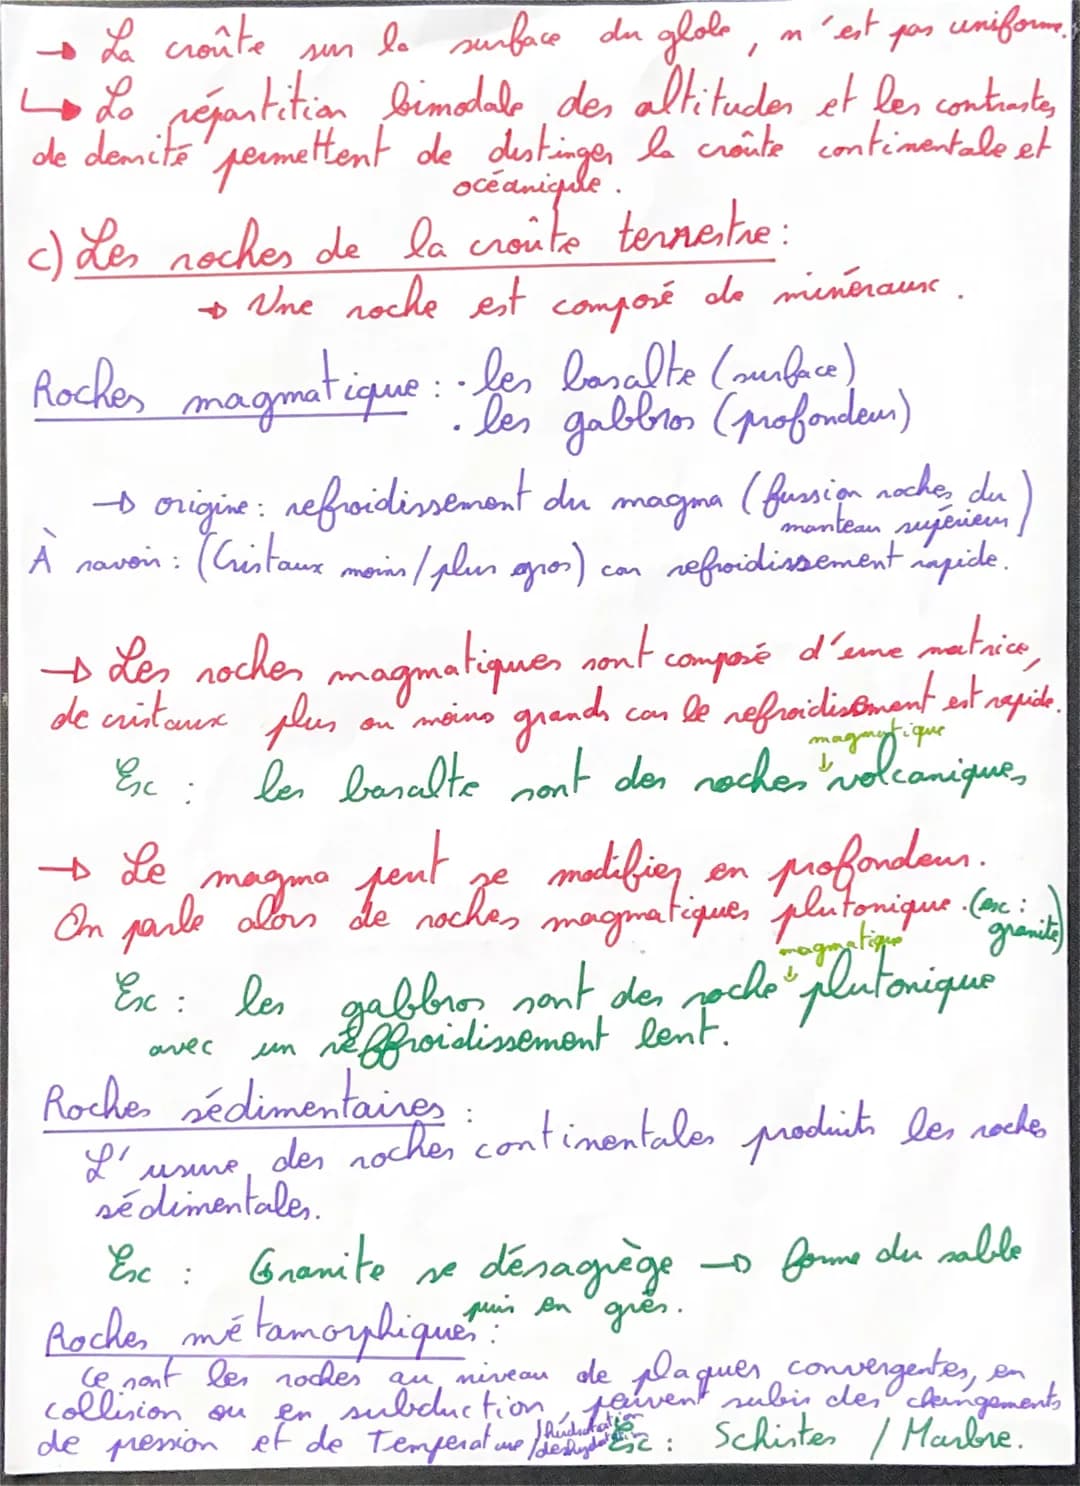 → La croûte sur la surface du globe, n'est pas uniforme.
↳ La répartition bimodale des altitudes et les contrastes
de densité permettent de distinger la croûte continentale et
océanique.
c) Les roches de la croûte terrestre :
→ Une roche est composé de minéraux.
Roches magmatique : · les basalte (surface)
· les gabbros (profondeur)
→ origine : refroidissement du magma (fussion roches du
manteau supérieur)
À savoir : (Cristaux moins/plus gros) car refroidissement rapide.
→ Les roches magmatiques sont composé d'une matrice,
de cristaux plus ou moins grands car le refroidissement est rapide.
magmatique
↓
Ex : les basalte sont des roches volcaniques
→ Le magma peut se modifier en profondeur.
On parle alors de roches magmatiques plutonique. (ex :
granite)
magmatique
↓
Ex : les gabbros sont des roche plutonique
avec un réffroidissement lent.
Roches sédimentaires :
L'usure des roches continentales produits les roches
sédimentales.
Ex : Granite se désagrège → forme du sable
puis en grès.
Roches métamorphiques :
Ce sont les roches au niveau de plaques convergentes, en
collision ou en subduction, peuvent subir des changements
de pression et de Température /hydratation
/deshydratation Ex : Schistes / Marbre.